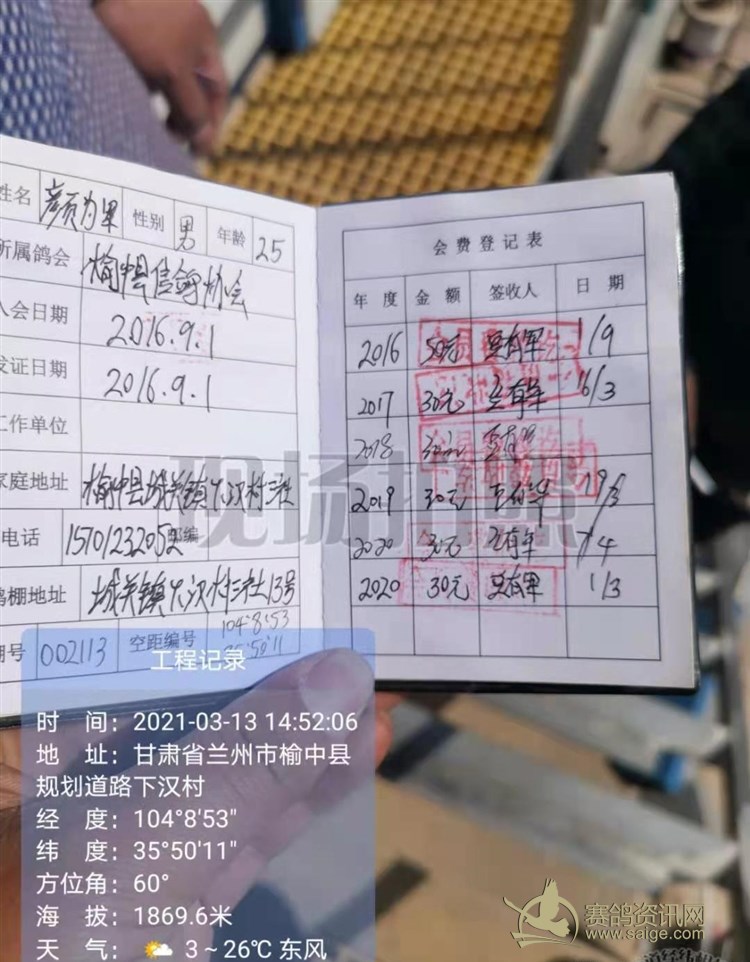 姓名 颜为军 性别 男 年龄 25
所属鸽会 榆中县信鸽协会
入会日期 2016.9.1
发证日期 2016.9.1
工作单位
家庭地址 榆中县城关镇下汉村三社
电话 15701232052 邮编
鸽棚地址 城关镇下汉村三社13号
棚号 002113 空距编号 104°8′53 35°50′11
会费登记表
年度 金额 签收人 日期
2016 50元 1/9
2017 30元 6/3
2018
2019 30元 19/3
2020 30元 7/4
2020 30元 1/3
现场拍照
工程记录
时 间：2021-03-13 14:52:06
地 址：甘肃省兰州市榆中县
规划道路下汉村
经 度：104°8'53"
纬 度：35°50'11"
方位角：60°
海 拔：1869.6米
天 气： 3～26℃ 东风
赛鸽资讯网
www.saige.com